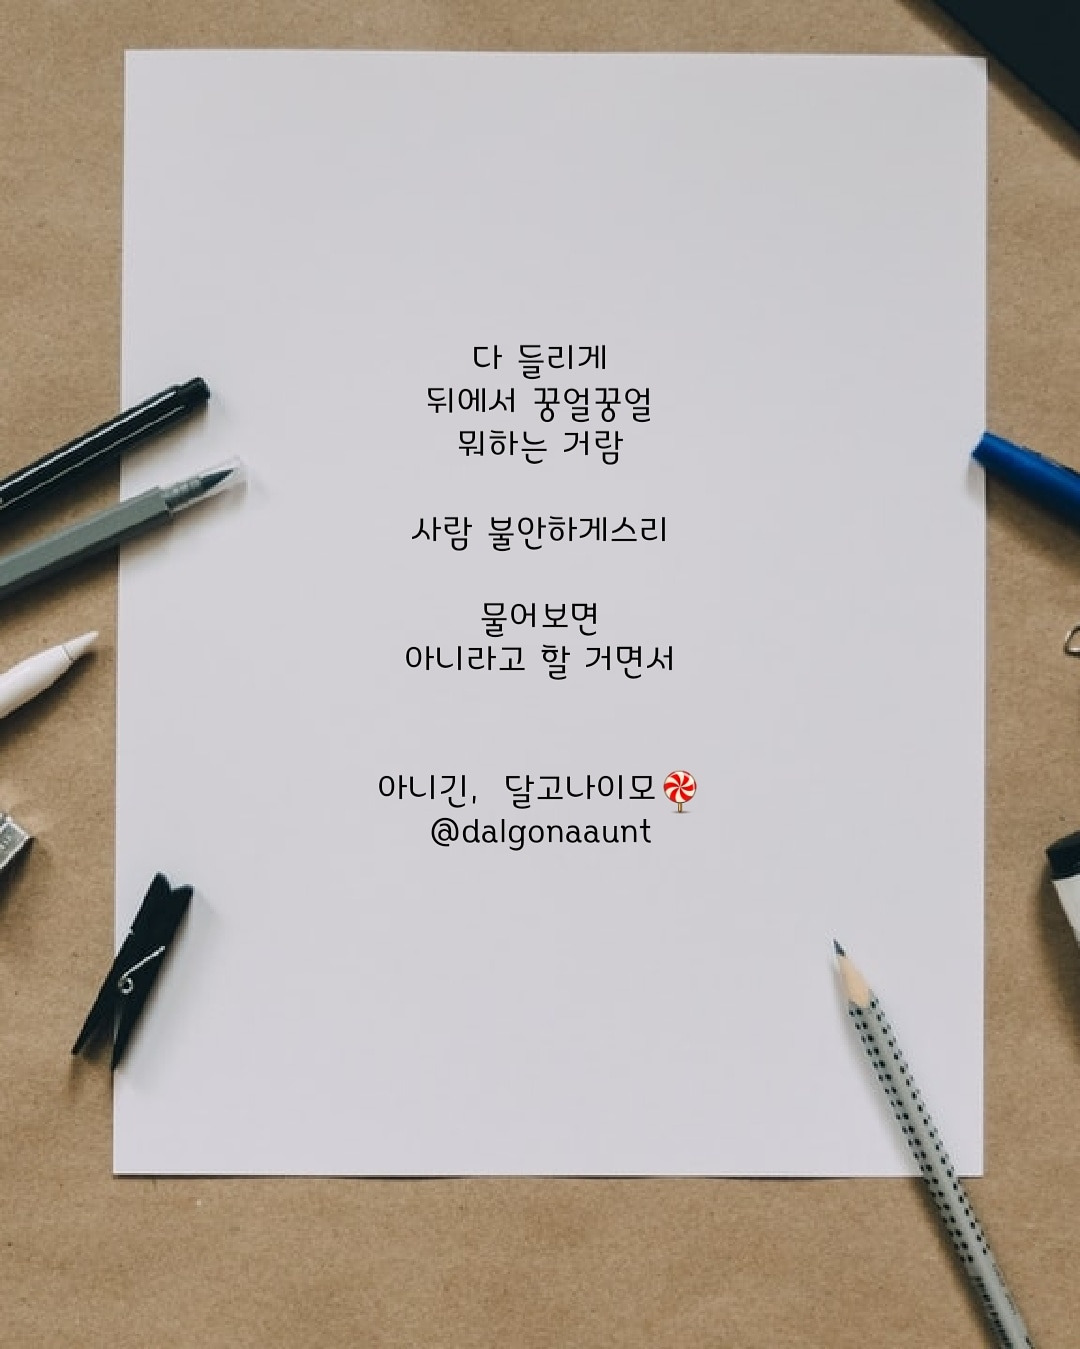 다 들리게
뒤에서 꿍얼꿍얼
뭐하는 거람
사람 불안하게스리
물어보면
아니라고 할 거면서
아니긴, 달고나이모🍭
@dalgonaaunt